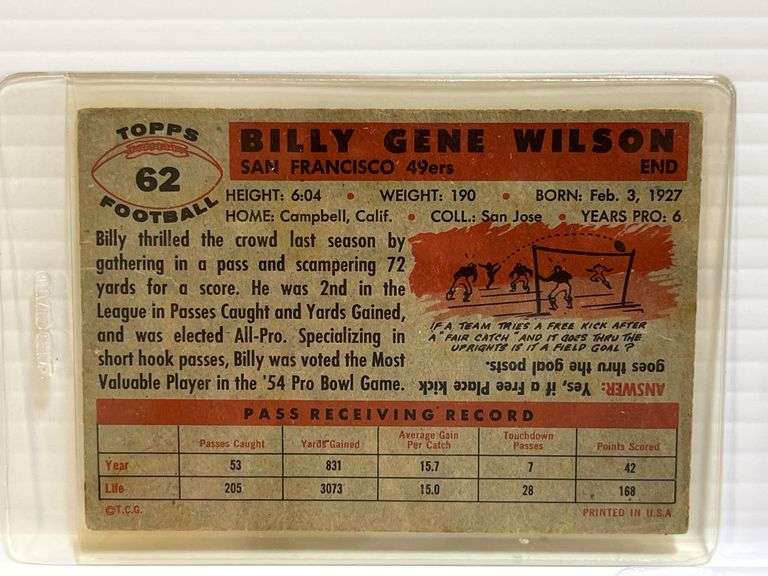 TOPPS
62
FOOTBALL
BILLY GENE WILSON
SAN FRANCISCO 49ers END
HEIGHT: 6:04 • WEIGHT: 190 • BORN: Feb. 3, 1927
HOME: Campbell, Calif. • COLL.: San Jose • YEARS PRO: 6
Billy thrilled the crowd last season by
gathering in a pass and scampering 72
yards for a score. He was 2nd in the
League in Passes Caught and Yards Gained,
and was elected All-Pro. Specializing in
short hook passes, Billy was voted the Most
Valuable Player in the '54 Pro Bowl Game.
IF A TEAM TRIES A FREE KICK AFTER
A "FAIR CATCH" AND IT GOES THRU THE
UPRIGHTS IS IT A FIELD GOAL?
ANSWER: Yes, if a Free Place kick
goes thru the goal posts.
PASS RECEIVING RECORD
Passes Caught Yards Gained Average Gain Per Catch Touchdown Passes Points Scored
Year 53 831 15.7 7 42
Life 205 3073 15.0 28 168
©T.C.G. PRINTED IN U.S.A